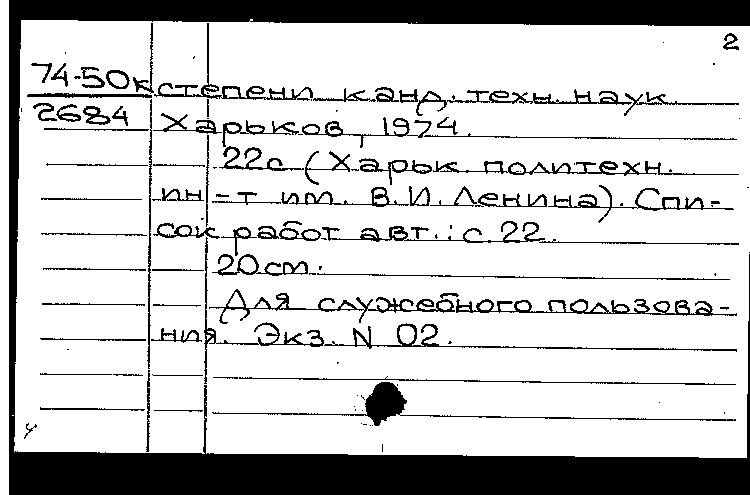 2
74-50к степени канд. техн. наук.
2684 Харьков, 1974.
22с (Харьк. политехн.
ин-т им. В.И. Ленина). Спи-
сок работ авт.: с. 22.
20см.
Для служебного пользова-
ния. Экз. N 02.